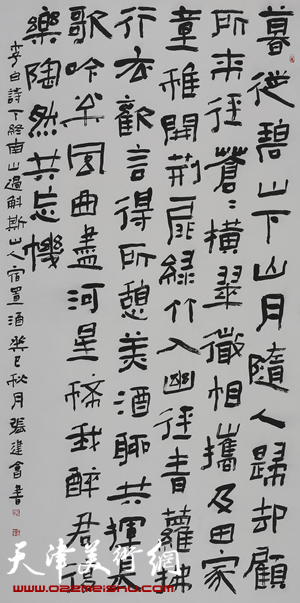 暮從碧山下山月隨人歸却顧
所來徑蒼〻橫翠微相攜及田家
童稚開荆扉綠竹入幽徑青蘿拂
行衣歡言得所憩美酒聊共揮長
歌吟松風曲盡河星稀我醉君復
樂陶然共忘機
李白詩下終南山過斛斯山人宿置酒癸巳秋月張建會書
天津美術網
www.022meishu.com